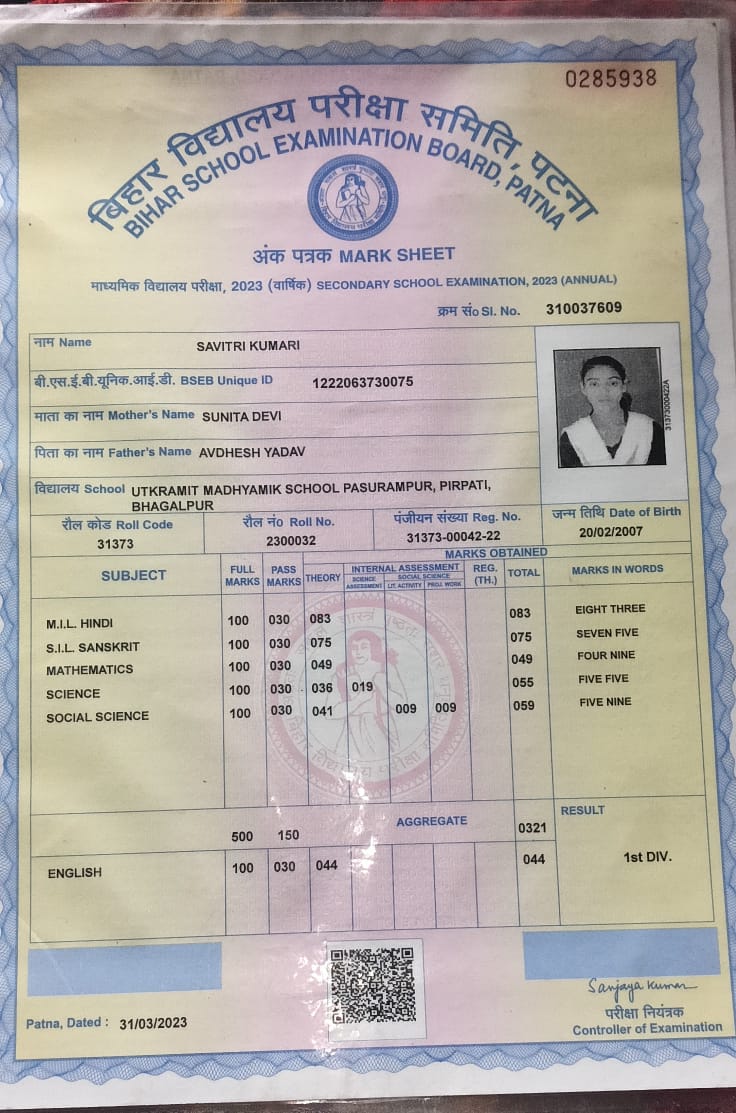 0285938
बिहार विद्यालय परीक्षा समिति, पटना
BIHAR SCHOOL EXAMINATION BOARD, PATNA
अंक पत्रक MARK SHEET
माध्यमिक विद्यालय परीक्षा, 2023 (वार्षिक) SECONDARY SCHOOL EXAMINATION, 2023 (ANNUAL)
क्रम सं० Sl. No. 310037609
नाम Name SAVITRI KUMARI
बी.एस.ई.बी.यूनिक.आई.डी. BSEB Unique ID 1222063730075
माता का नाम Mother's Name SUNITA DEVI
पिता का नाम Father's Name AVDHESH YADAV
विद्यालय School UTKRAMIT MADHYAMIK SCHOOL PASURAMPUR, PIRPATI,
BHAGALPUR
रौल कोड Roll Code रौल नं० Roll No. पंजीयन संख्या Reg. No. जन्म तिथि Date of Birth
31373 2300032 31373-00042-22 20/02/2007
MARKS OBTAINED
SUBJECT FULL MARKS PASS MARKS THEORY INTERNAL ASSESSMENT REG. (TH.) TOTAL MARKS IN WORDS
SCIENCE ASSESSMENT SOCIAL SCIENCE
LIT. ACTIVITY PROJ. WORK
M.I.L. HINDI 100 030 083 083 EIGHT THREE
S.I.L. SANSKRIT 100 030 075 075 SEVEN FIVE
MATHEMATICS 100 030 049 049 FOUR NINE
SCIENCE 100 030 036 019 055 FIVE FIVE
SOCIAL SCIENCE 100 030 041 009 009 059 FIVE NINE
500 150 AGGREGATE 0321 RESULT
ENGLISH 100 030 044 044 1st DIV.
Sanjaya Kumar
Patna, Dated : 31/03/2023 परीक्षा नियंत्रक
Controller of Examination